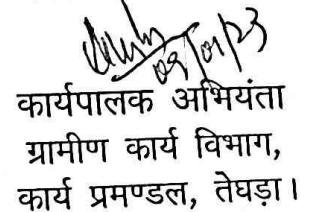 09/01/23
कार्यपालक अभियंता
ग्रामीण कार्य विभाग,
कार्य प्रमण्डल, तेघड़ा।